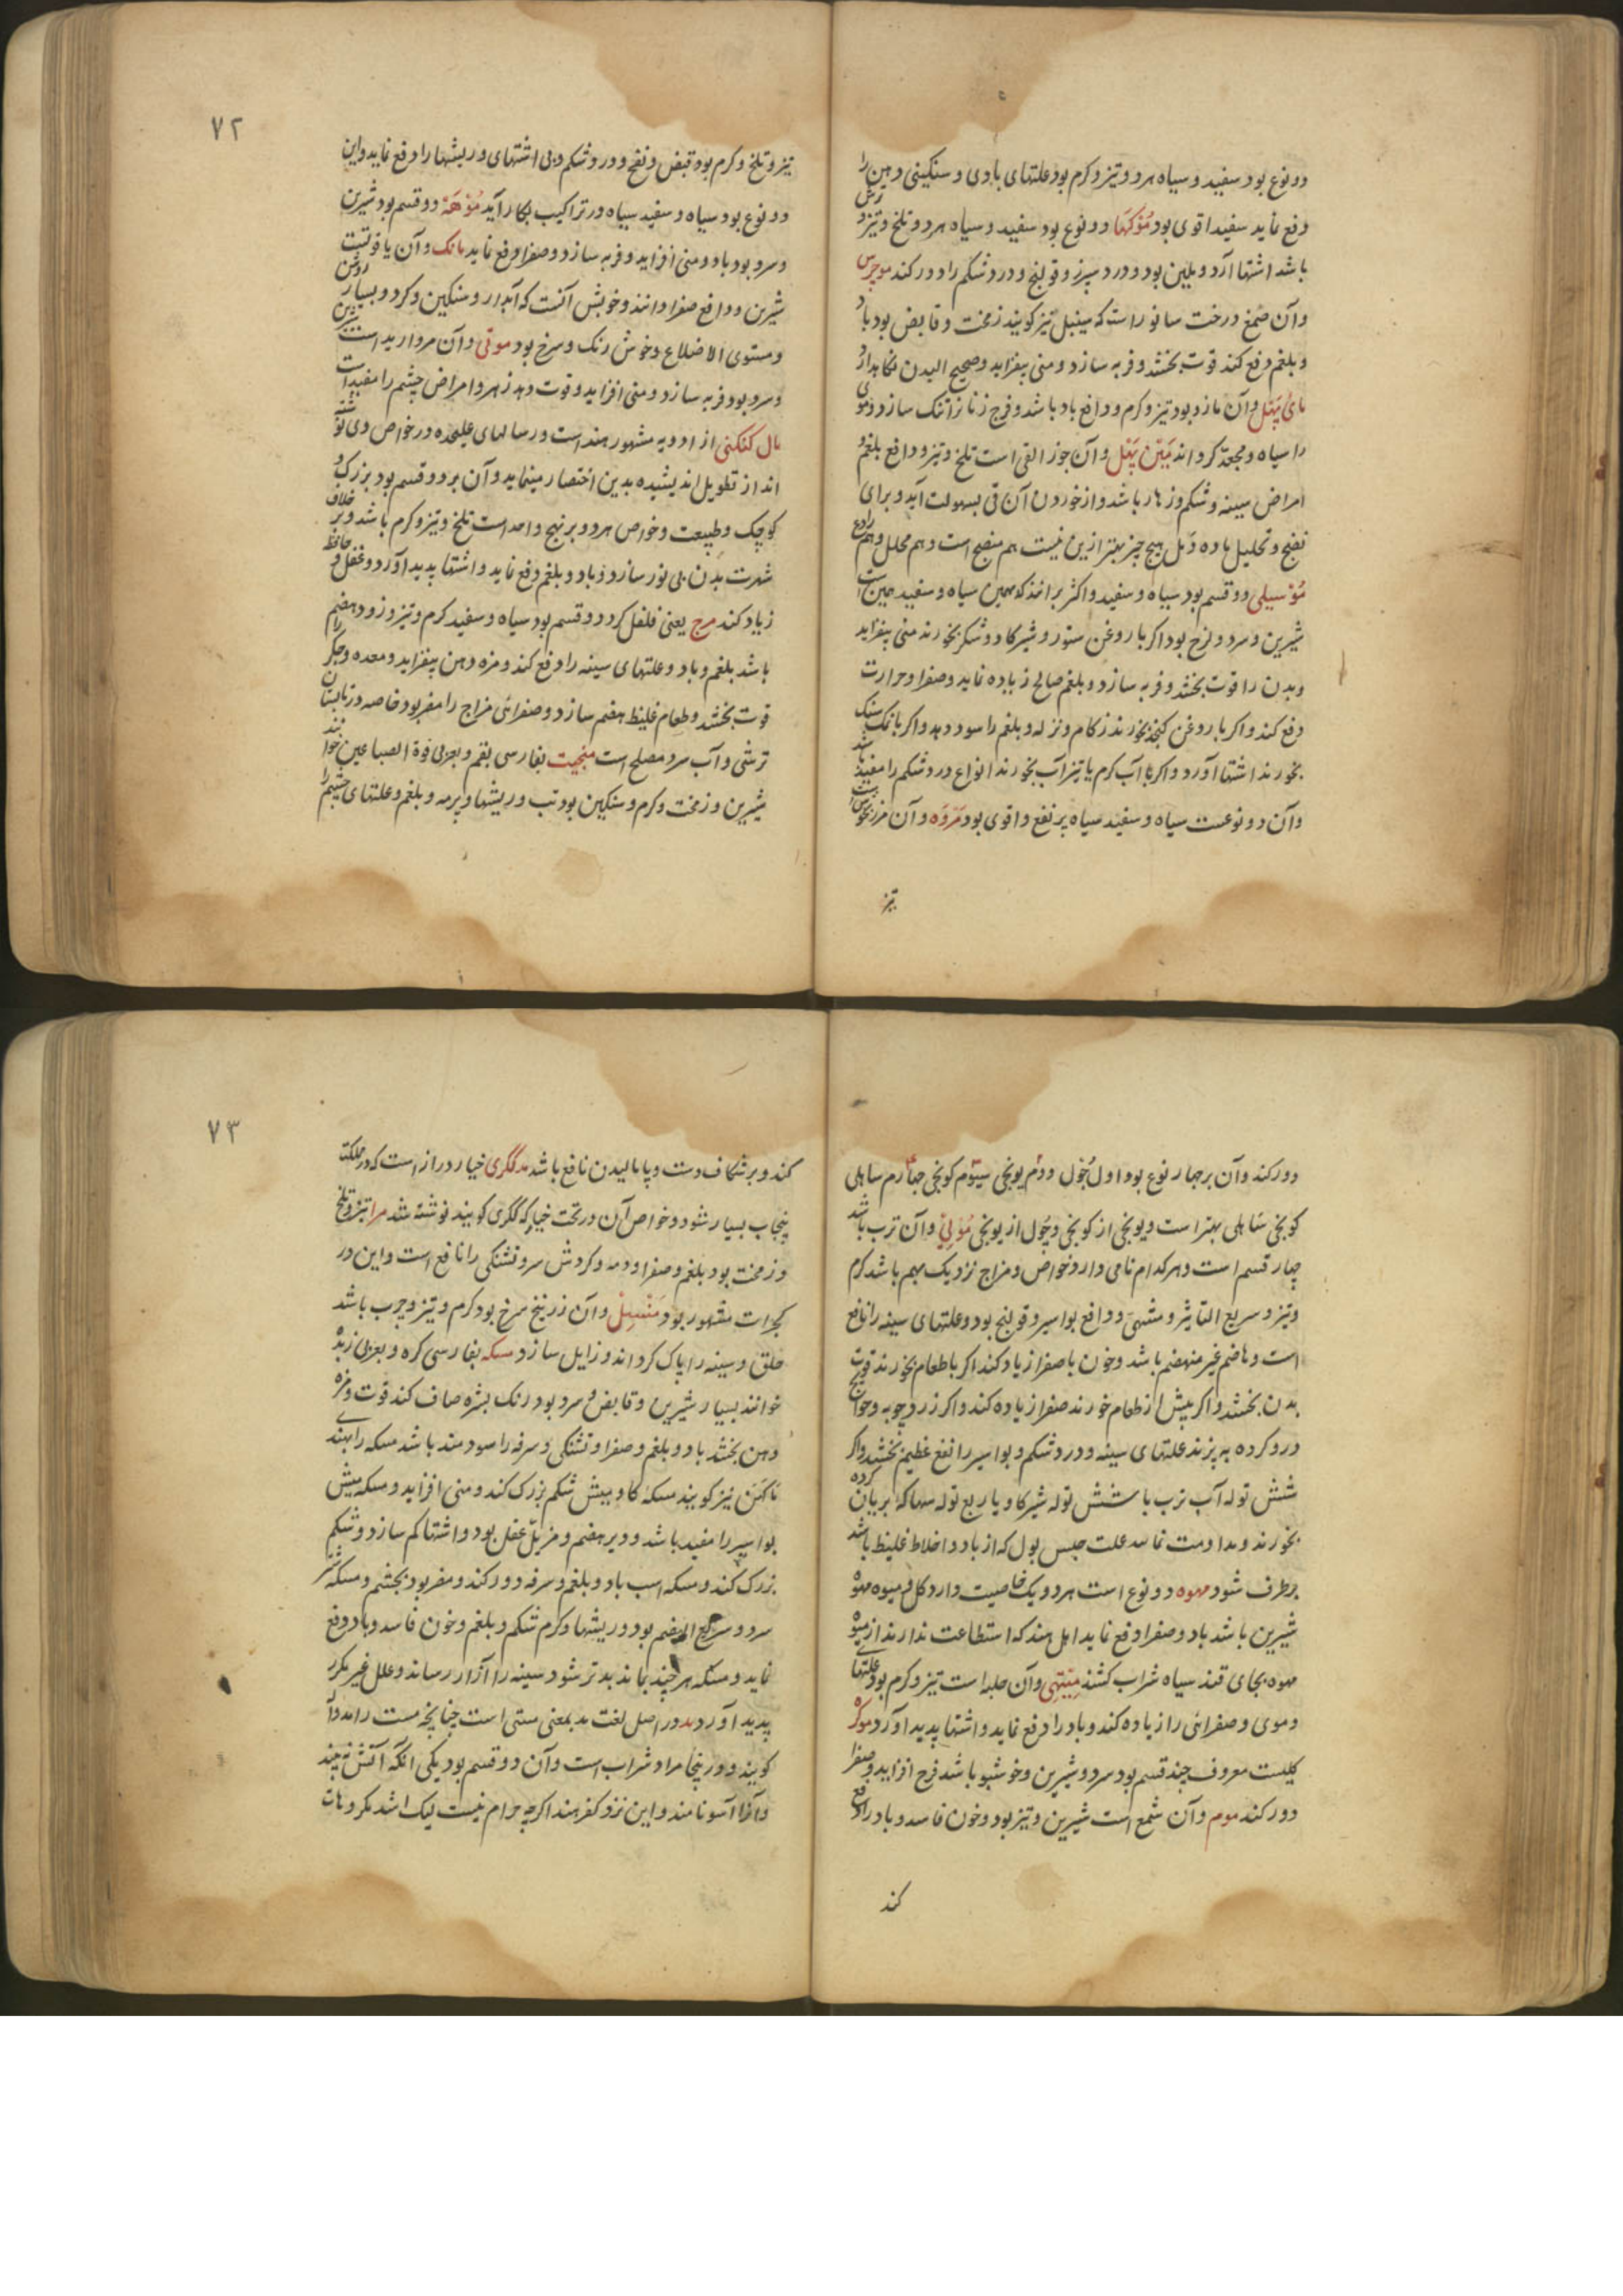 دو نوع بود سفید و سیاه هر دو تیز و گرم بود علتهای بادی و سنکینی دهن را
دفع نماید سفید اقوی بود مُوکهَا دو نوع بود سفید و سیاه هر دو تلخ و تیز و ترش
باشد اشتها آرد و ملین بود و درد سپرز و قولنج و درد شکم را دور کند موچرس
وآن صمغ درخت سانور است که سینبل نیز کویند زمخت و قابض بود باد و
و بلغم دفع کند قوت بخشد و فربه سازد و منی بیفزاید و صحیح البدن نکاهدارد
مائی پَهَل وآن مازو بود تیز و کرم و دافع باد باشد و فرج زنان را تنک سازد و موی
را سیاه و مجعد کرداند مَیَن پَهَل وآن جوز القی است تلخ و تیز و دافع بلغم و
امراض سینه و شکم و زهار باشد و از خوردن آن قی بسهولت آید و برای
نضج و تحلیل ماده دمل هیچ چیز بهتر ازین نیست هم منضج است و هم محلل و هم رادع
مُوسیلی دو قسم بود سیاه و سفید و اکثر برانند که همین سیاه و سفید همین است
شیرین و سرد و لزج بود اکر با روغن ستور و شیر کاو و شکر بخورند منی بیفزاید
و بدن را قوت بخشد و فربه سازد و بلغم صالح زیاده نماید و صفرا و حرارت
دفع کند و اکر با روغن کنجد بخورند زکام و نزله و بلغم را سود دهد و اکر با نمک سنک
بخورند اشتها آورد و اکر با آب کرم یا تیز آب بخورند انواع درد شکم را مفید باشد
وآن دو نوعست سیاه و سفید سیاه پر نفع و اقوی بود مَروَه وآن مرزنجوش است
تیز
۷۲
تیز و تلخ و کرم بود قبض و نفخ و درد شکم و بی اشتهای و ریشها را دفع نماید و این
دو نوع بود سیاه و سفید سیاه در تراکیب بکار آید مُوهَه دو قسم بود شیرین
و سرد بود باد و منی افزاید و فربه سازد و صفرا دفع نماید مانک وآن یاقوتست
شیرین و دافع صفرا دانند و خوبش آنست که آبدار و سنکین و کرد و بسیار روشن
و مستوی الاضلاع و خوش رنک و سرخ بود موتی وآن مروارید است شیرین
و سرد بود فربه سازد و منی افزاید و قوت دهد زهر و امراض چشم را مفید است
مال کنکنی از ادویه مشهور هند است و رسالهای علیحده در خواص وی نوشته
اند از تطویل اندیشیده بدین اختصار مینماید وآن بر دو قسم بود بزرک و
کوچک و طبیعت و خواص هر دو بر نهج واحد است تلخ و تیز و کرم باشد و بر خلاف
شهرت بدن بی نور سازد و باد و بلغم دفع نماید و اشتها پدید آورد و عقل و حافظه
زیاد کند مرچ یعنی فلفل کرد دو قسم بود سیاه و سفید کرم و تیز و زود هضم
باشد بلغم و باد و علتهای سینه را دفع کند و مزه دهن بیفزاید و معده و جکر را
قوت بخشد و طعام غلیظ هضم سازد و صفرائی مزاج را مضر بود خاصه در تابستان
ترشی و آب سرد مصلح است منجیت بفارسی بقم و بعربی فوة الصباغین خوانند
شیرین و زمخت و کرم و سنکین بود تب و ریشها و پرمه و بلغم و علتهای چشم را
دور کند وآن بر چهار نوع بود اول چُول دوم یوبخی سیّوم کوبخی چهارم ساملی
کوبخی شاملی بهتر است و یوبخی از کوبخی و چُول از یوبخی مُولِی وآن ترب باشد
چهار قسم است و هر کدام نامی دارد و خواص و مزاج نزدیک بهم باشد کرم
و تیز و سریع التاثیر و مشهی و دافع بواسیر و قولنج بود و علتهای سینه را نافع
است و هاضم غیر منهضم باشد و خون با صفرا زیاد کند اکر با طعام بخورند قوت
بدن بخشد و اکر پیش از طعام خورند صفرا زیاده کند و اکر زردچوبه و حوایج
درو کرده بپزند علتهای سینه و درد شکم و بواسیر را نفع عظیم بخشد و اکر
شش توله آب ترب با شش توله شیر کاو یا ربع توله سهاکه بریان کرده
بخورند و مداومت نمایند علت حبس بول که از باد و اخلاط غلیظ باشد
برطرف شود مهوه دو نوع است هر دو یک خاصیت دارد کل و میوه مهوه
شیرین باشد باد و صفرا دفع نماید اهل هند که استطاعت ندارند از میوه
مهوه بجای قند سیاه شراب کشند مِیتهِی وآن حلبه است تیز و کرم بود علتها
دموی و صفرائی را زیاده کند و باد را دفع نماید و اشتها پدید آورد موکره
کلیست معروف چند قسم بود سرد و شیرین و خوشبو باشد فرح افزاید و صفرا
دور کند موم وآن شمع است شیرین و تیز بود و خون فاسد و باد را دفع
کند
۷۳
کند و بر شکاف دست و پا بالیدن نافع باشد مد ککری خیار دراز است که در مملکت
پنجاب بسیار شود و خواص آن در تحت خیار که ککری کویند نوشته شد مرا تیز و تلخ
و زمخت بود بلغم و صفرا و دمه و کردش سر و تشنکی را نافع است و این در
کجرات مشهور بود مَنْسِلْ وآن زرنیخ سرخ بود کرم و تیز و چرب باشد
حلق و سینه را پاک کرداند و زایل سازد مسکه بفارسی کره و بعربی زبد
خوانند بسیار شیرین و قابض و سرد بود رنک بشره صاف کند قوت و مزه
دهن بخشد باد و بلغم و صفرا و تشنکی و سرفه را سودمند باشد مسکه را بهندی
ماکَهن نیز کویند مسکه کاو میش شکم بزرک کند و منی افزاید و مسکه میش
بواسیر را مفید باشد و دیر هضم و مزیل عقل بود و اشتها کم سازد و شکم
بزرک کند و مسکه اسب باد و بلغم و سرفه دور کند و مضر بود بچشم و مسکه شتر
سرد و سریع الهضم بود و ریشها و کرم شکم و بلغم و خون فاسد و باد دفع
نماید و مسکه هر چند بماند بدتر شود سینه را آزار رساند و علل غیر مکرر
پدید آورد مد در اصل لغت مد بمعنی مستی است چنانچه مست را مدوا
کویند و درینجا مراد شراب است وآن دو قسم بود یکی آنکه آتش نه بیند
وآنرا آسو نامند و این نزد کفر هند اکرچه حرام نیست لیک اشد مکروهات